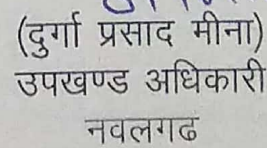 (दुर्गा प्रसाद मीना)
उपखण्ड अधिकारी
नवलगढ